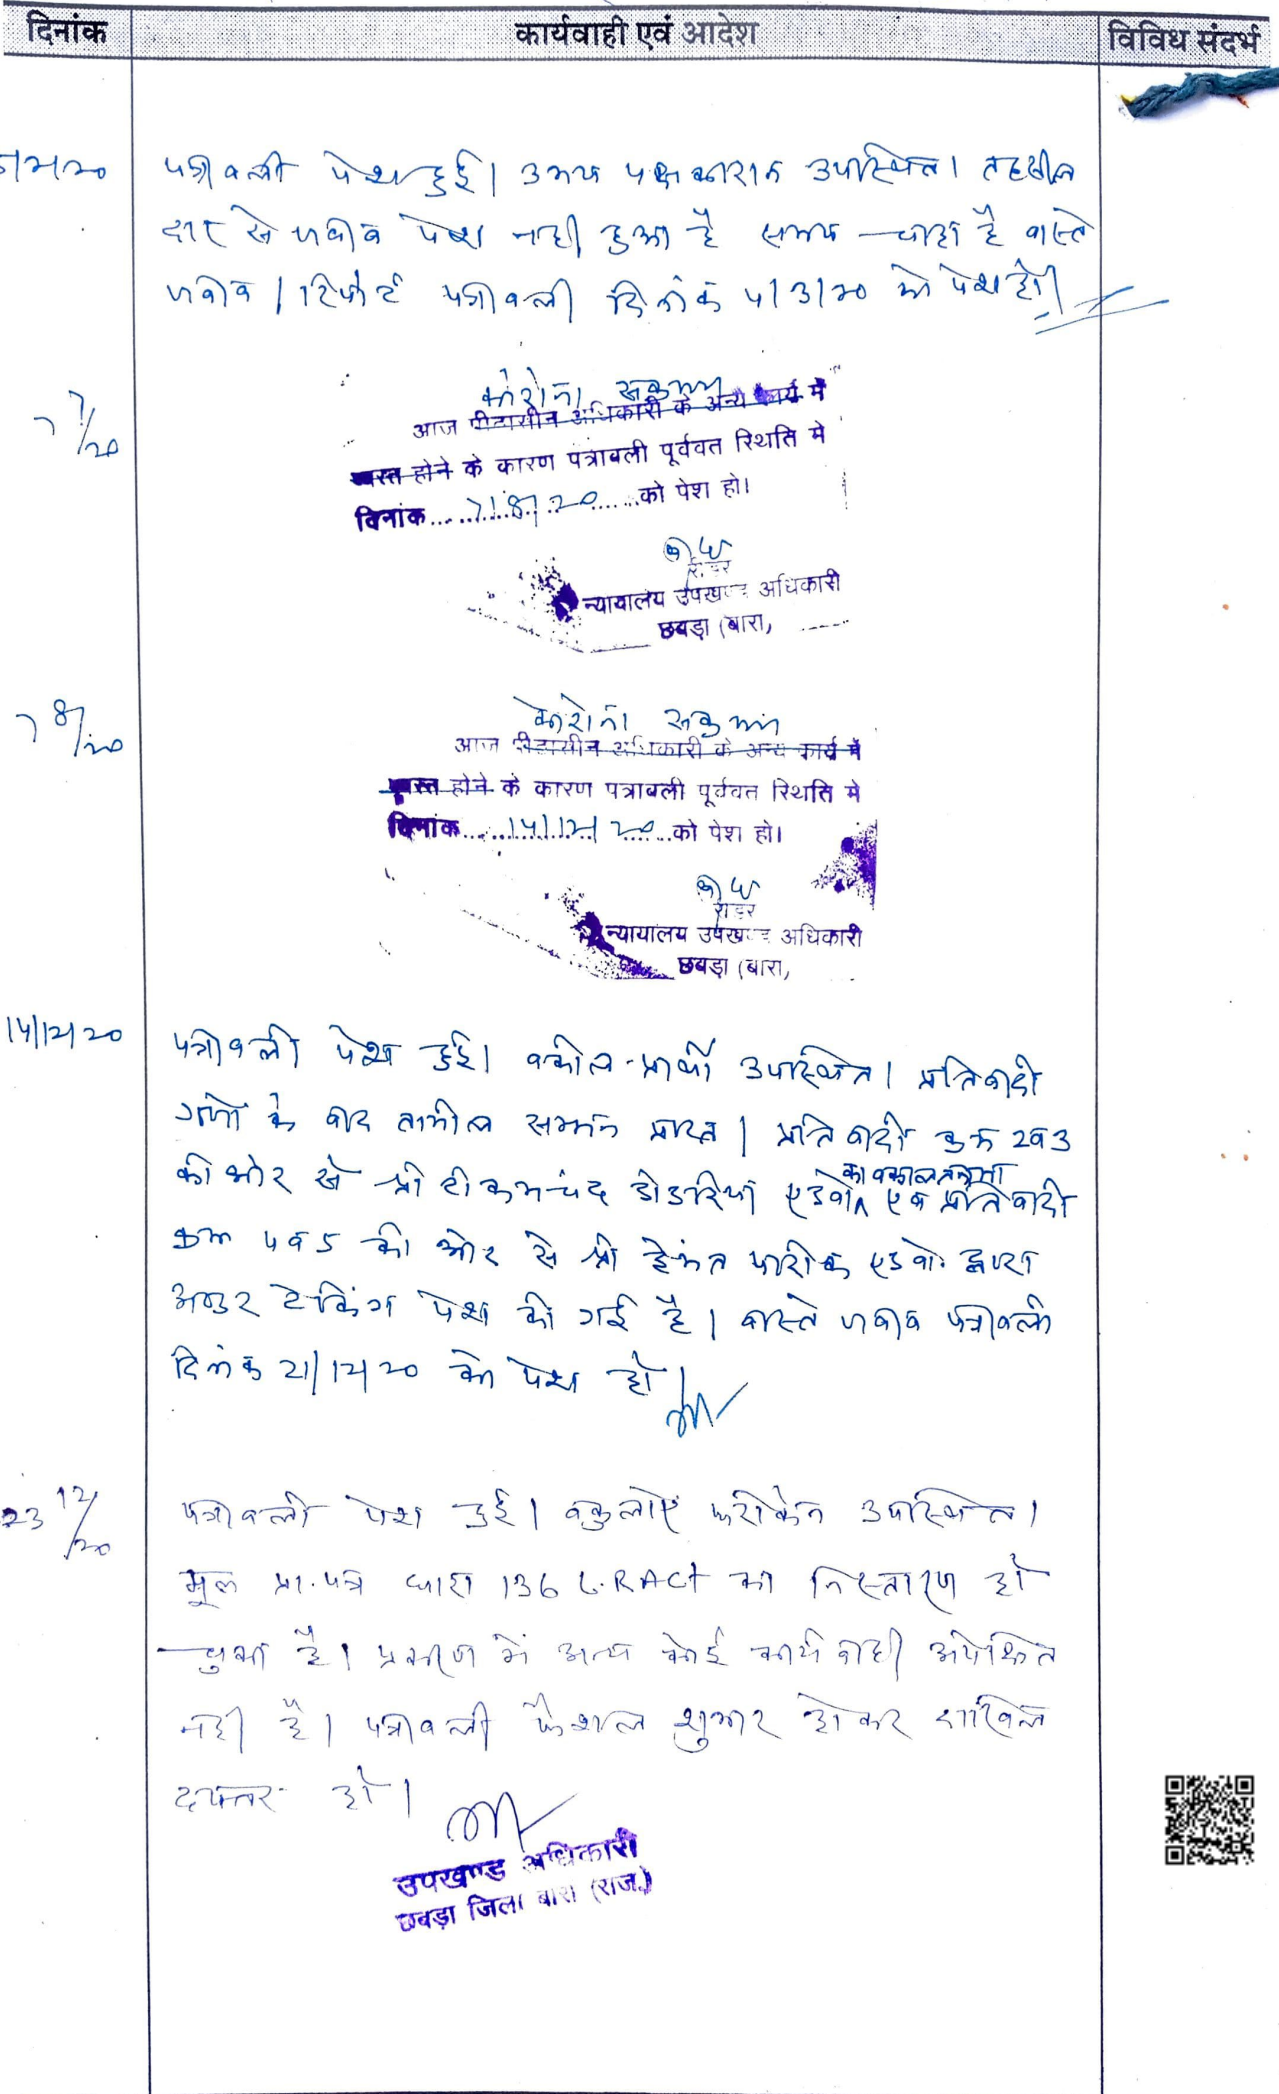 दिनांक कार्यवाही एवं आदेश विविध संदर्भ
पत्रावली पेश हुई। उभय पक्षकारान उपस्थित। तहसील
दार से जवाब पेश नही हुआ है समय चाहा है वास्ते
जवाब / रिपोर्ट पत्रावली दिनांक 4/3/20 को पेश हो।
7 7/20
कोरोना संक्रमण
आज पीठासीन अधिकारी के अन्य कार्य में
व्यस्त होने के कारण पत्रावली पूर्ववत स्थिति मे
दिनांक 7/8/20 को पेश हो।
रीडर
न्यायालय उपखण्ड अधिकारी
छबड़ा (बारा,
7 8/20
कोरोना संक्रमण
आज पीठासीन अधिकारी के अन्य कार्य में
व्यस्त होने के कारण पत्रावली पूर्ववत स्थिति मे
दिनांक 14/12/20 को पेश हो।
रीडर
न्यायालय उपखण्ड अधिकारी
छबड़ा (बारा,
14/12/20
पत्रावली पेश हुई। वकील प्रार्थी उपस्थित। प्रतिवादी
गणों के बाद तामील सम्मन प्राप्त। प्रतिवादी क्रम 2व3
की ओर से श्री टीकमचंद डोडरिया एडवो० का वकालतनामा एव प्रतिवादी
क्रम 4व5 की ओर से श्री हेमंत पारीक एडवो. द्वारा
अण्डर टेकिंग पेश की गई है। वास्ते जवाब पत्रावली
दिनांक 21/12/20 को पेश हो।
23 12/20
पत्रावली पेश हुई। वकुलाऐ फरीकेन उपस्थित।
मूल प्रा.पत्र धारा 136 L.RACt का निस्तारण हो
चुका है। प्रकरण में अन्य कोई कार्यवाही अपेक्षित
नही है। पत्रावली फैशल शुमार होकर दाखिल
दफ्तर हो।
उपखण्ड अधिकारी
छबड़ा जिला बारां (राज.)